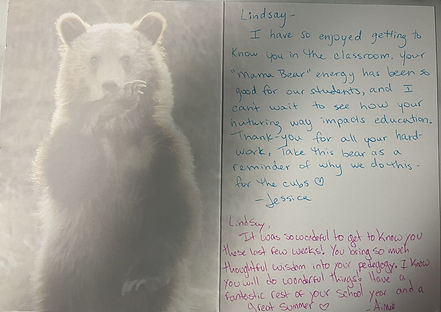 Lindsay -
I have so enjoyed getting to
know you in the classroom. Your
"Mama Bear" energy has been so
good for our students, and I
can't wait to see how your
nuturing way impacts education.
Thank you for all your hard-
work. Take this bear as a
reminder of why we do this -
for the cubs ♡
- Jessica
Lindsay,
It was so wonderful to get to know you
these last few weeks! You bring so much
thoughtful wisdom into your pedegogy. I know
you will do wonderful things! Have a
fantastic rest of your school year and a
great summer ♡